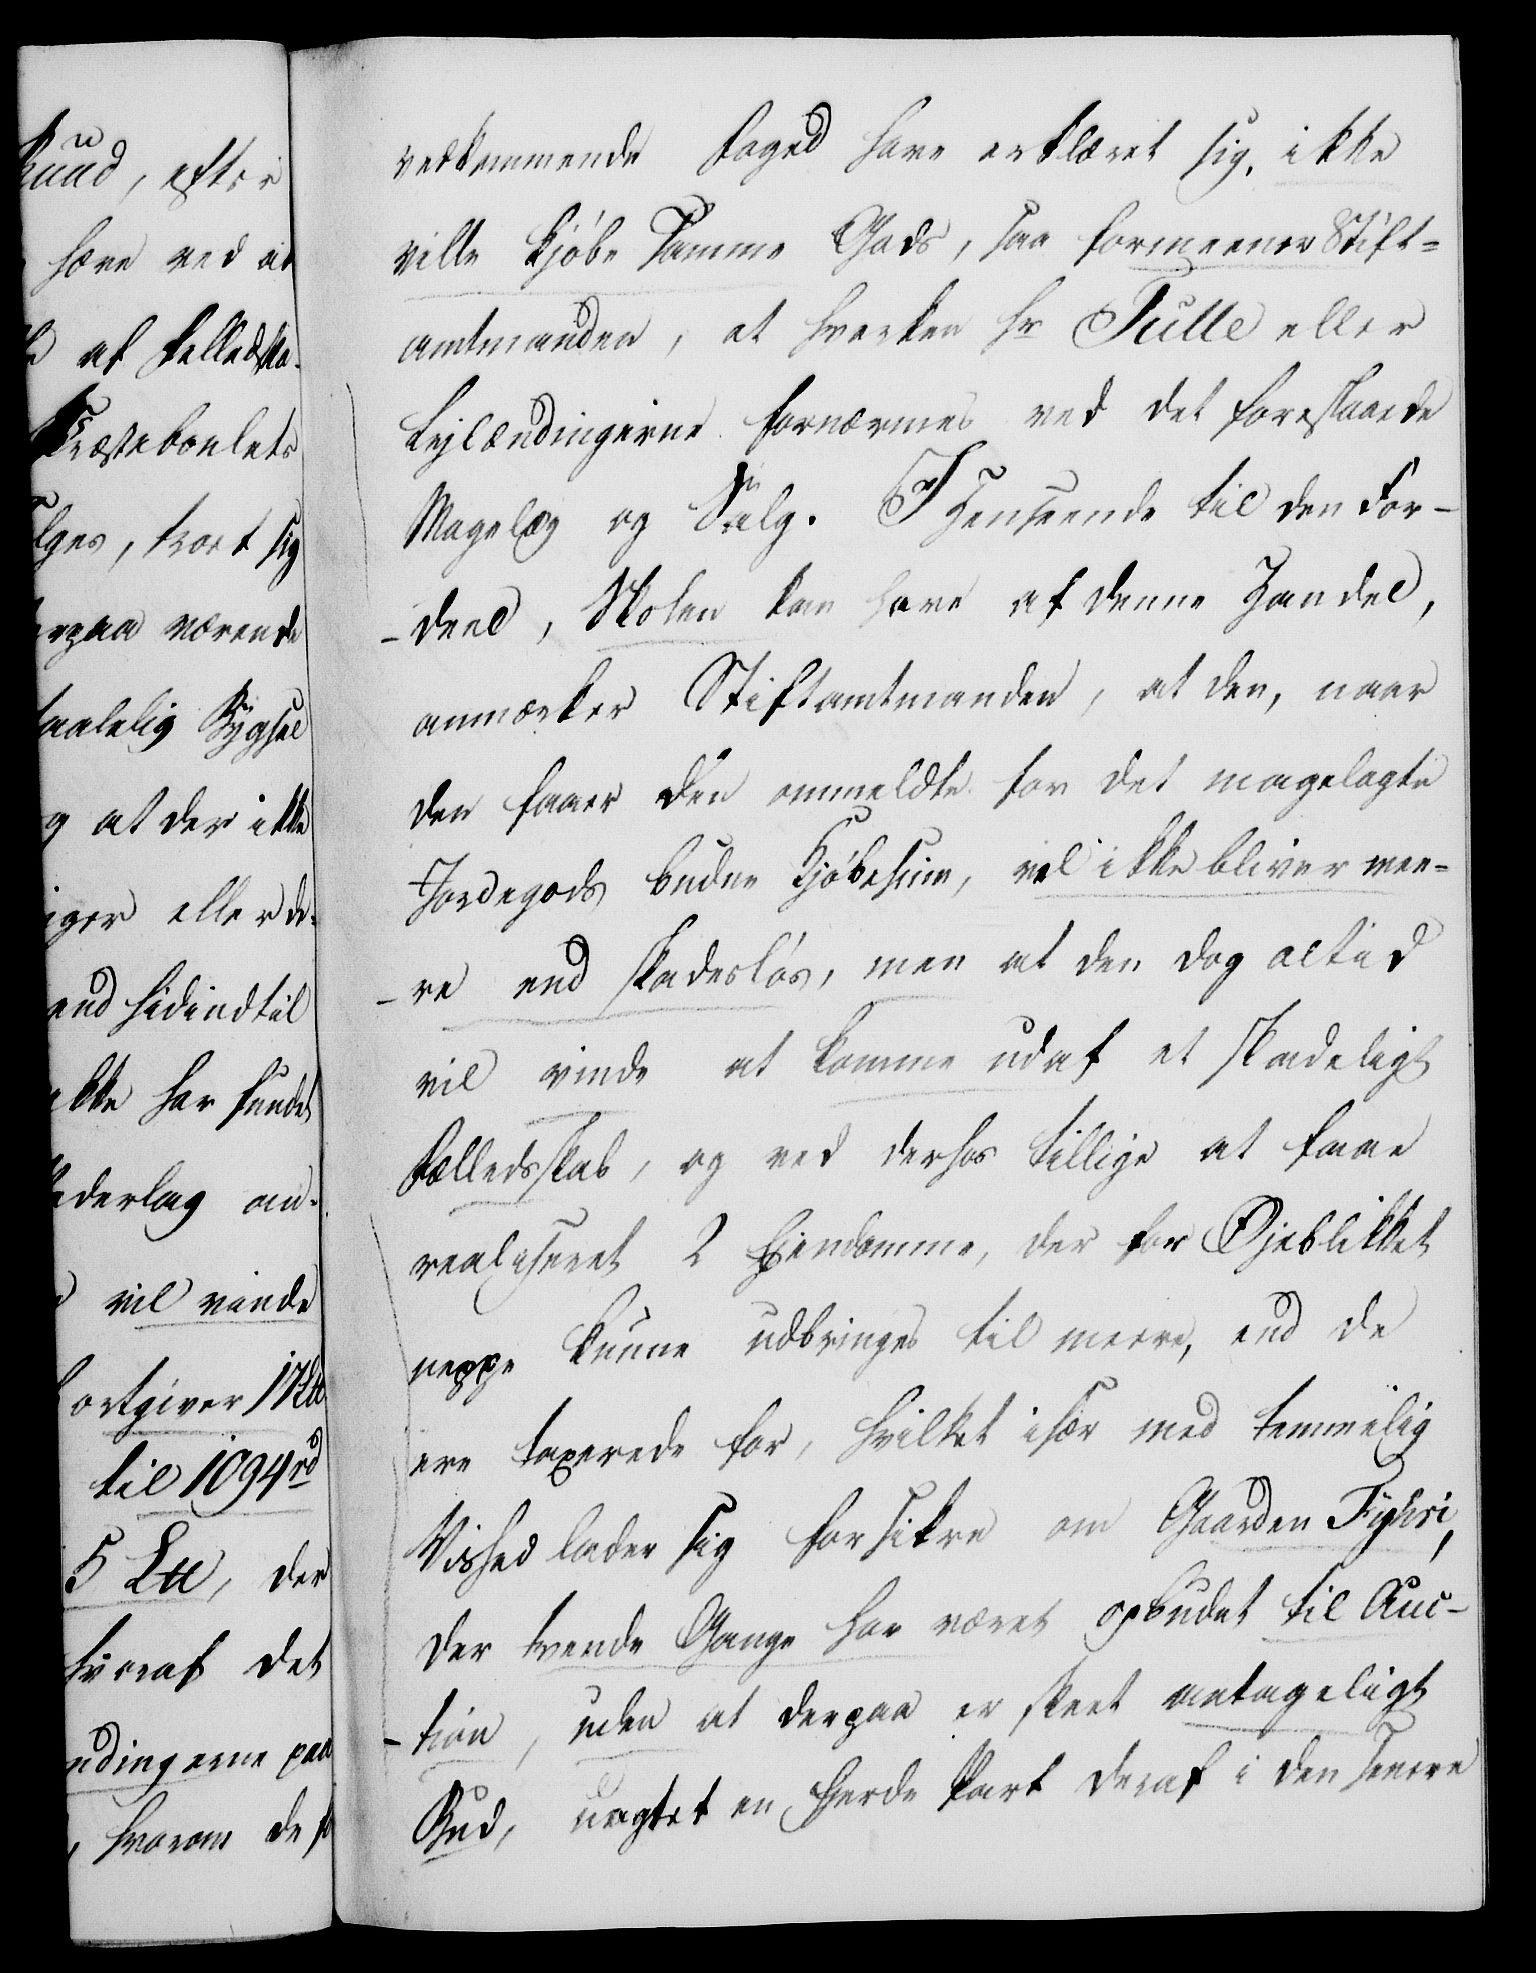 Kuud, efter
have ved at
af Felledska-
Præstebolets
lges, tvort sig
erpaa værende
aalelig Bygsel
g at der ikke
iger eller de-
end hidindtil
ikke har fundet
ederlag an-
vil vinde
bortgiver 17
til 1094 rd
5 , der
hvoraf det
ndingerne paa
, hvorom de
vedkommende Foged have erklæret sig, ikke
ville kjöbe samme Gods, saa formeener Stift-
amtmanden, at hverken Hr Tulle eller
Lejlændingerne fornærmes ved det foreslaaede
Magelæg og Salg. I Henseende til den For-
-deel, Skolen kan have af denne Handel,
anmærker Stiftamtmanden, at den, naar
den faaer den ommeldte for det magelagte
Jordegods budne Kjöbesum, vel ikke bliver mee-
-re end skadeslös, men at den dog altid
vil vinde at komme udaf et skadeligt
Fælledsskab, og ved derhos tillige at faae
realiseret 2 Ejendomme, der for Øjeblikket
neppe kunne udbringes til meere, end de
ere taxerede for, hvilket især med temmelig
Vished lader sig forsikre om Gaarden ,
der tvende Gange har været opbudet til Auc-
-tion, uden at derpaa er skeet antageligt
Bud, uagtet en fjerde Part deraf i den senere